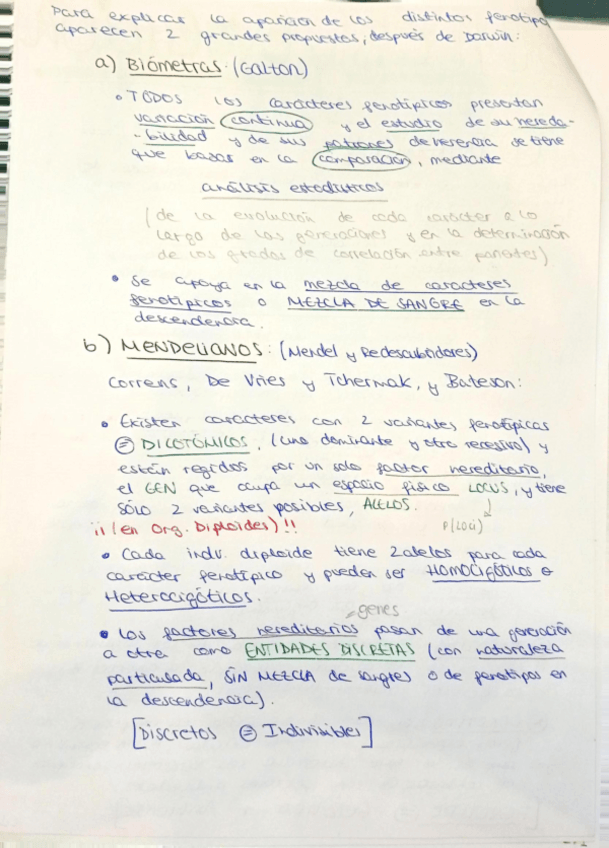 Para explicar la aparición de los distintos fenotipos
aparecen 2 grandes propuestas, después de Darwin:
a) Biómetras: (Galton)
• TODOS los caracteres fenotípicos presentan
variación continua y el estudio de su hereda-
-bilidad y de sus patrones de herencia se tiene
que basar en la comparación, mediante
análisis estadísticos
(de la evolución de cada carácter a lo
largo de las generaciones y en la determinación
de los grados de correlación entre parientes)
• Se apoya en la mezcla de caracteres
fenotípicos o MEZCLA DE SANGRE en la
descendencia.
b) MENDELIANOS: (Mendel y Redescubridores)
Correns, De Vries y Tchermak, y Bateson:
• Existen caracteres con 2 variantes fenotípicas
= DICOTÓMICOS, (uno dominante y otro recesivo) y
están regidos por un solo factor hereditario,
el GEN que ocupa un espacio físico LOCUS, y tiene
SÓLO 2 variantes posibles, ALELOS.
¡¡(en Org. Diploides)!! p(Loci)
• Cada indv. diploide tiene 2 alelos para cada
carácter fenotípico y pueden ser HOMOCIGÓTICOS o
Heterocigóticos.
genes
• Los factores hereditarios pasan de una generación
a otra como ENTIDADES DISCRETAS (con naturaleza
particulada, SIN MEZCLA de sangres o de fenotipos en
la descendencia).
[Discretos = Indivisibles]